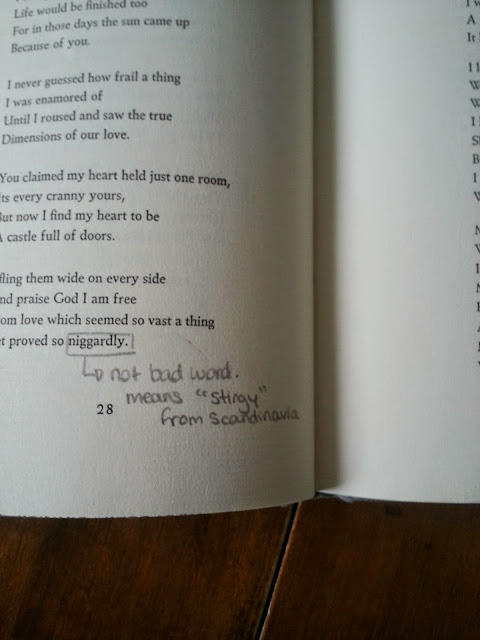 Life would be finished too
For in those days the sun came up
Because of you.
I never guessed how frail a thing
I was enamored of
Until I roused and saw the true
Dimensions of our love.
You claimed my heart held just one room,
ts every cranny yours,
But now I find my heart to be
A castle full of doors.
fling them wide on every side
nd praise God I am free
om love which seemed so vast a thing
t proved so niggardly.
not bad word.
means "stingy"
from Scandinavia
28